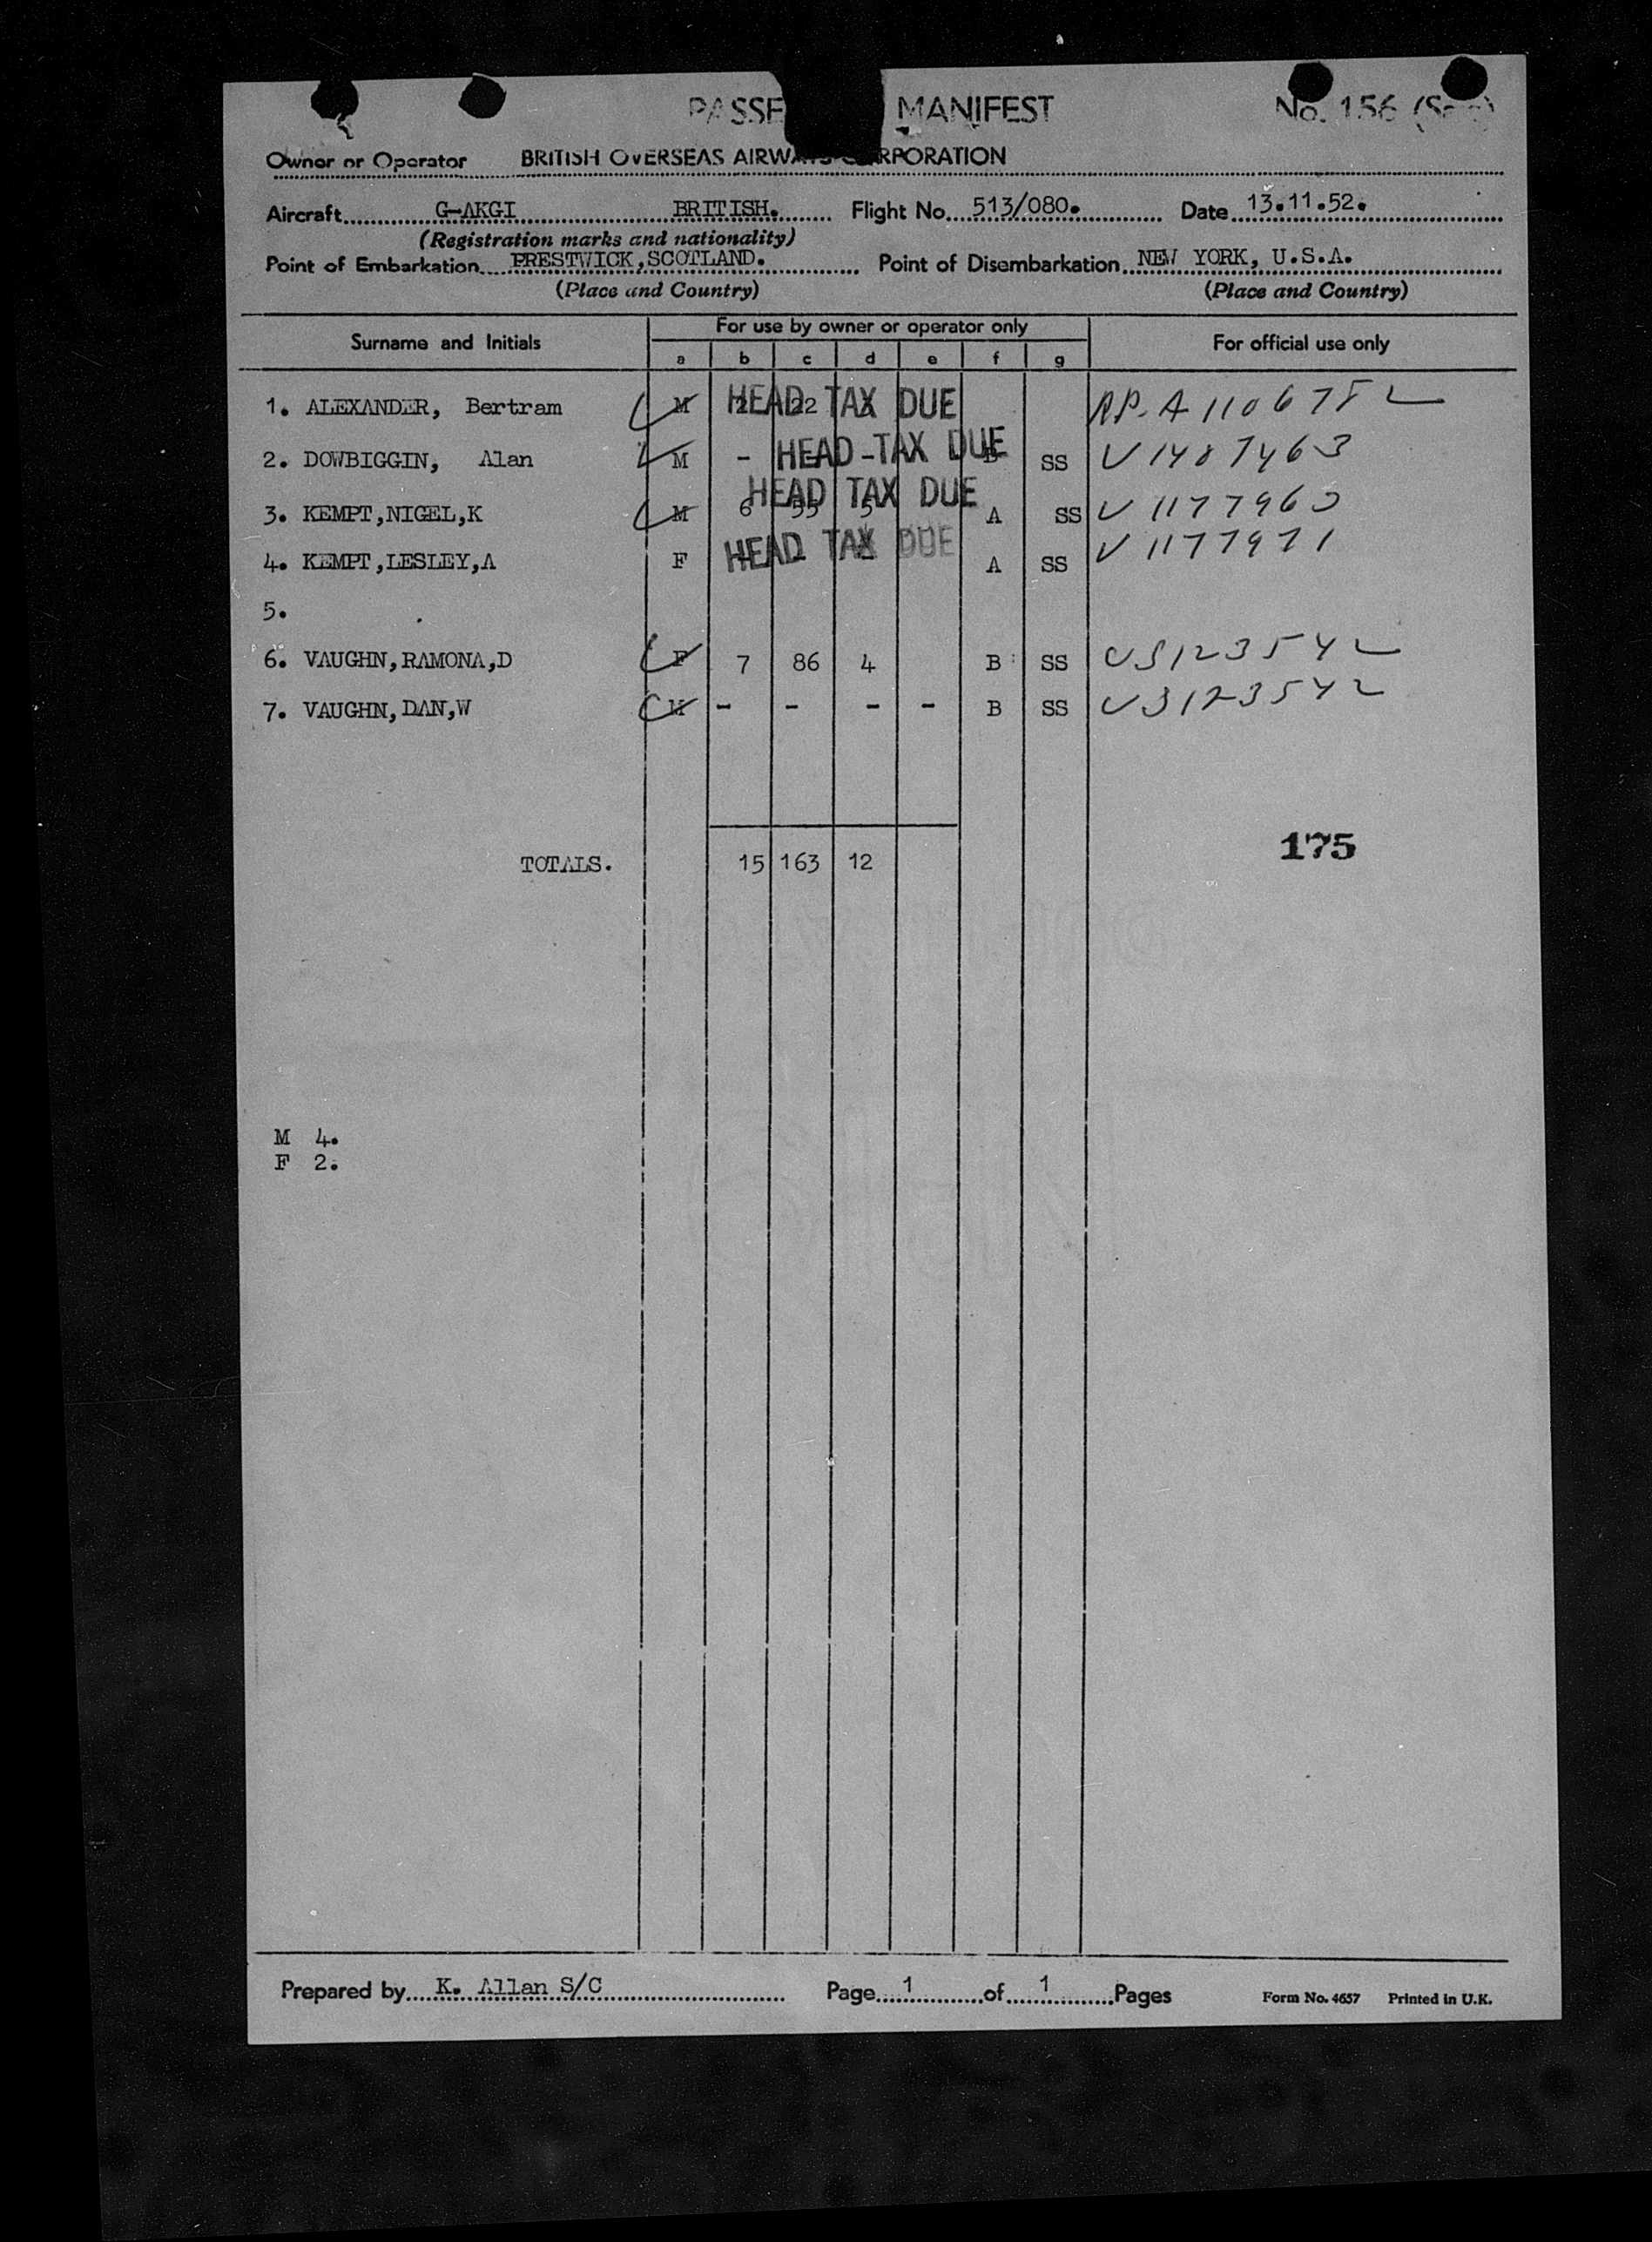 PASSE MANIFEST No. 156
Owner or Operator BRITISH OVERSEAS AIRWAYS CORPORATION
Aircraft G-AKGI BRITISH. Flight No. 513/080. Date 13.11.52.
(Registration marks and nationality)
Point of Embarkation PRESTWICK,SCOTLAND. Point of Disembarkation NEW YORK, U.S.A.
(Place and Country) (Place and Country)
Surname and Initials For use by owner or operator only For official use only
a b c d e f g
1. ALEXANDER, Bertram M HEAD TAX DUE
2. DOWBIGGIN, Alan M - HEAD TAX DUE SS V1487463
3. KEMPT,NIGEL,K M 6 HEAD TAX DUE A SS V 1177960
4. KEMPT,LESLEY,A F HEAD TAX DUE A SS V 1177971
5.
6. VAUGHN,RAMONA,D F 7 86 4 B SS US123542
7. VAUGHN,DAN,W M - - - - B SS US123542
175
TOTALS. 15 163 12
M 4.
F 2.
Prepared by K. Allan S/C Page 1 of 1 Pages Form No. 4657 Printed in U.K.